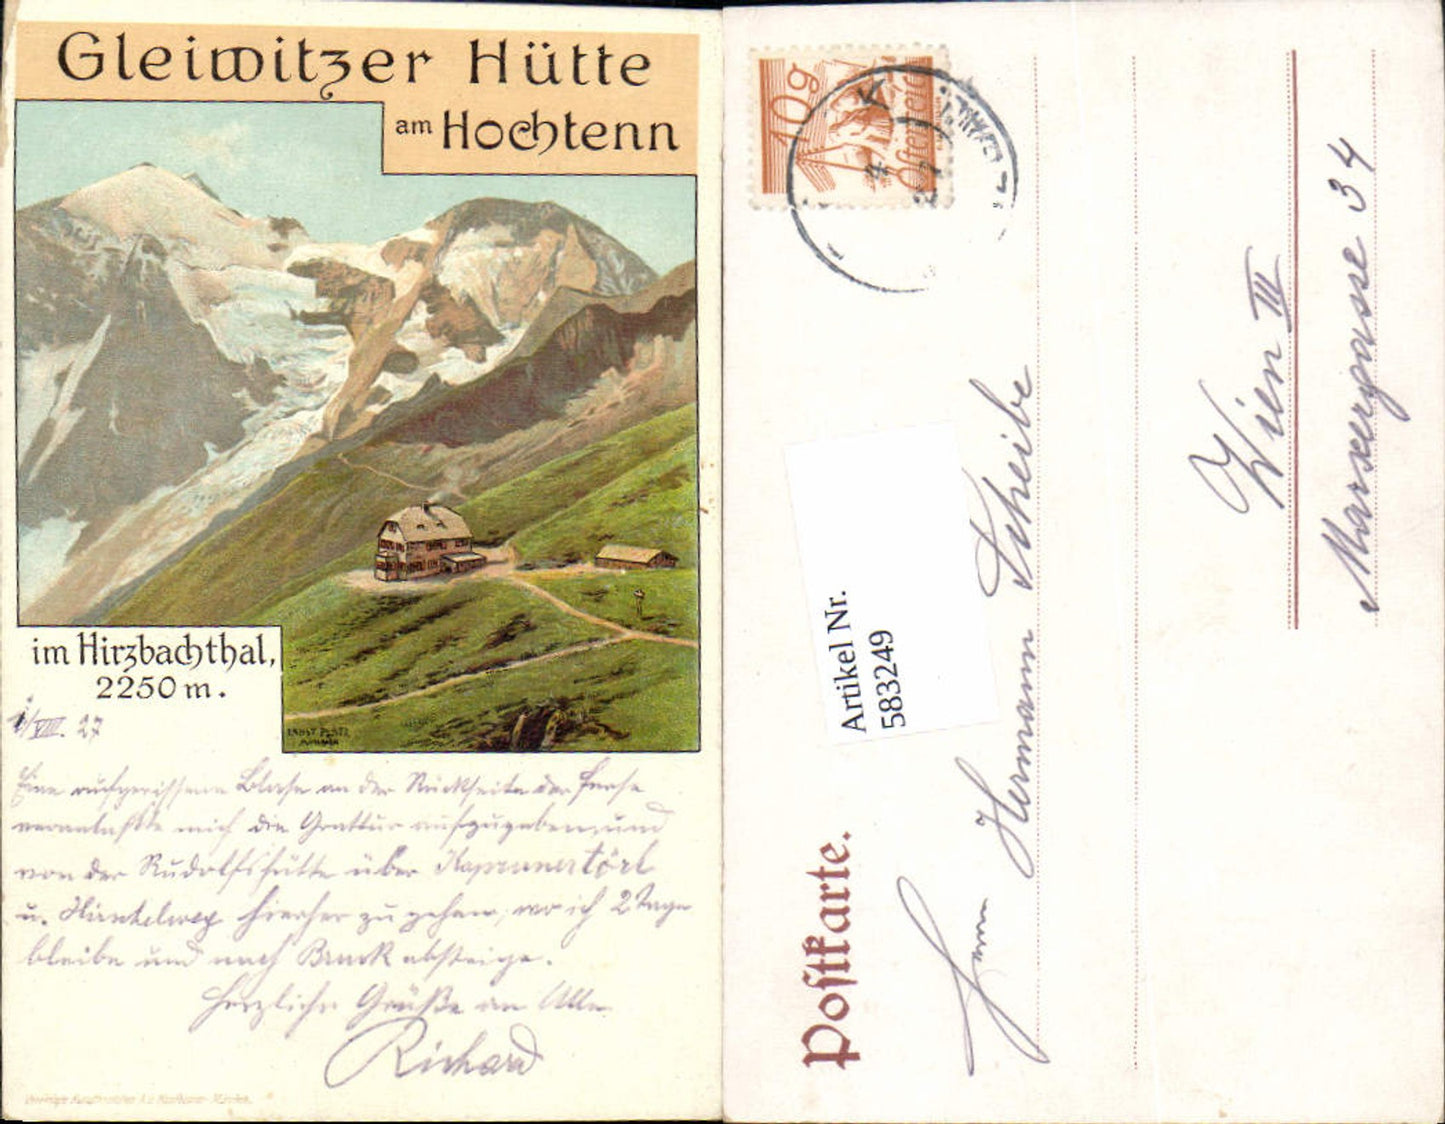 Gleiwitzer Hütte
am Hochtenn
im Hirzbachthal,
2250 m.
/VIII. 27
ERNST PLATZ
MÜNCHEN
Eine aufgerissene Blase an der Rückseite der Ferse
veranlaßte mich die Grattur aufzugeben und
von der Rudolfshütte über Kaprunertörl
u. Hirzbachweg hierher zu gehen, wo ich 2 Tage
bleibe und nach Bruck absteige.
Herzliche Grüße an Alle
Richard
Vereinigte Kunstanstalten A.G. Kaufbeuren-München.
10g
Österreich
Artikel Nr.
583249
Postkarte.
Herrn Hermann Scheibe
Wien III
Marxergasse 34